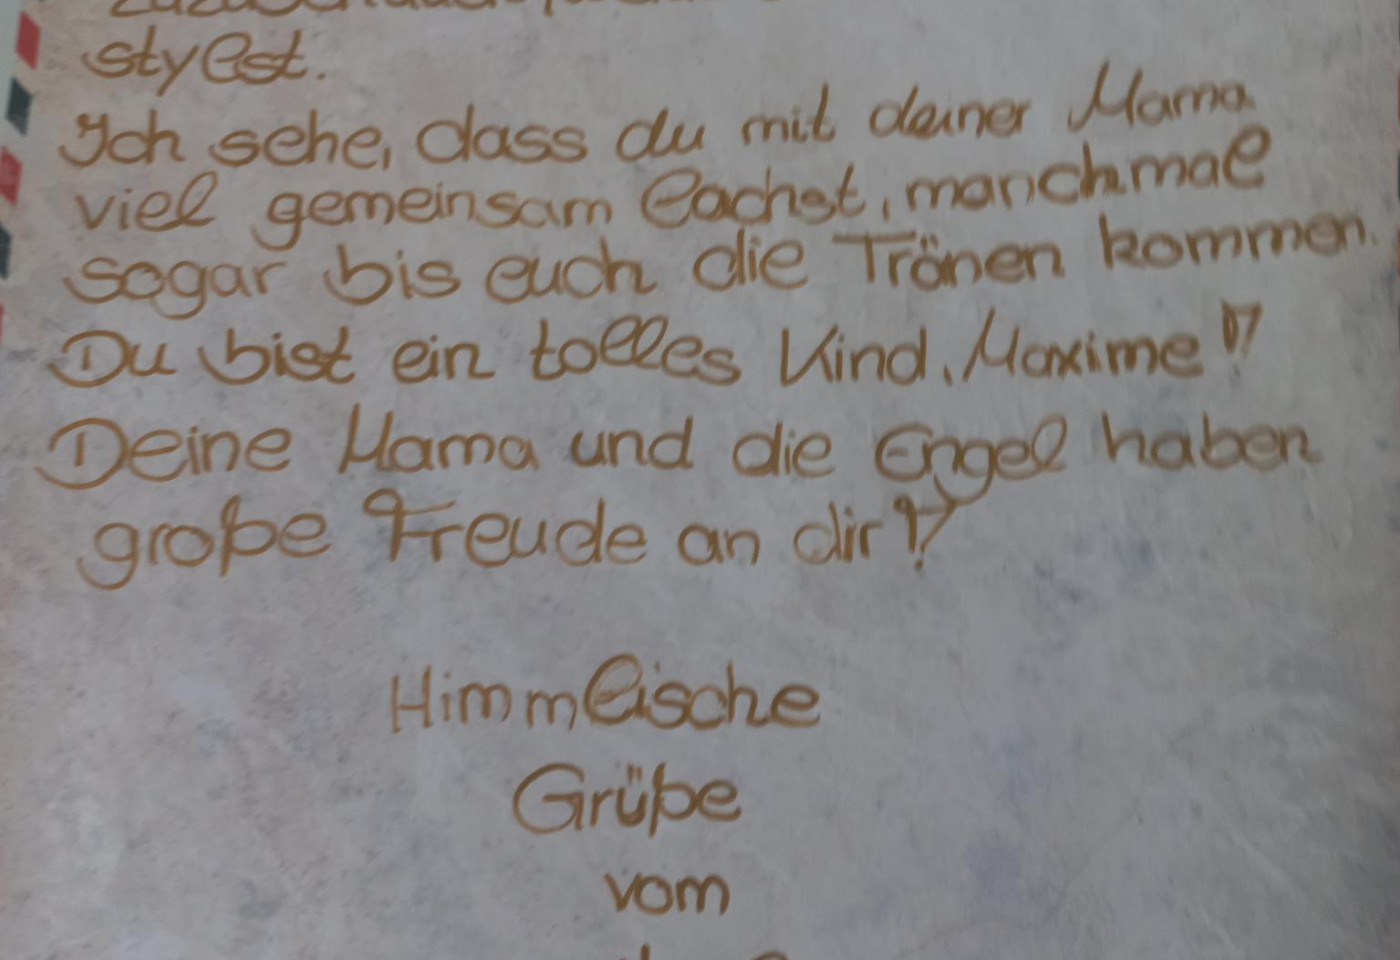 stylst.
Ich sehe, dass du mit deiner Mama
viel gemeinsam lachst, manchmal
sogar bis euch die Tränen kommen.
Du bist ein tolles Kind, Maxime!
Deine Mama und die Engel haben
große Freude an dir!
Himmlische
Grüße
vom